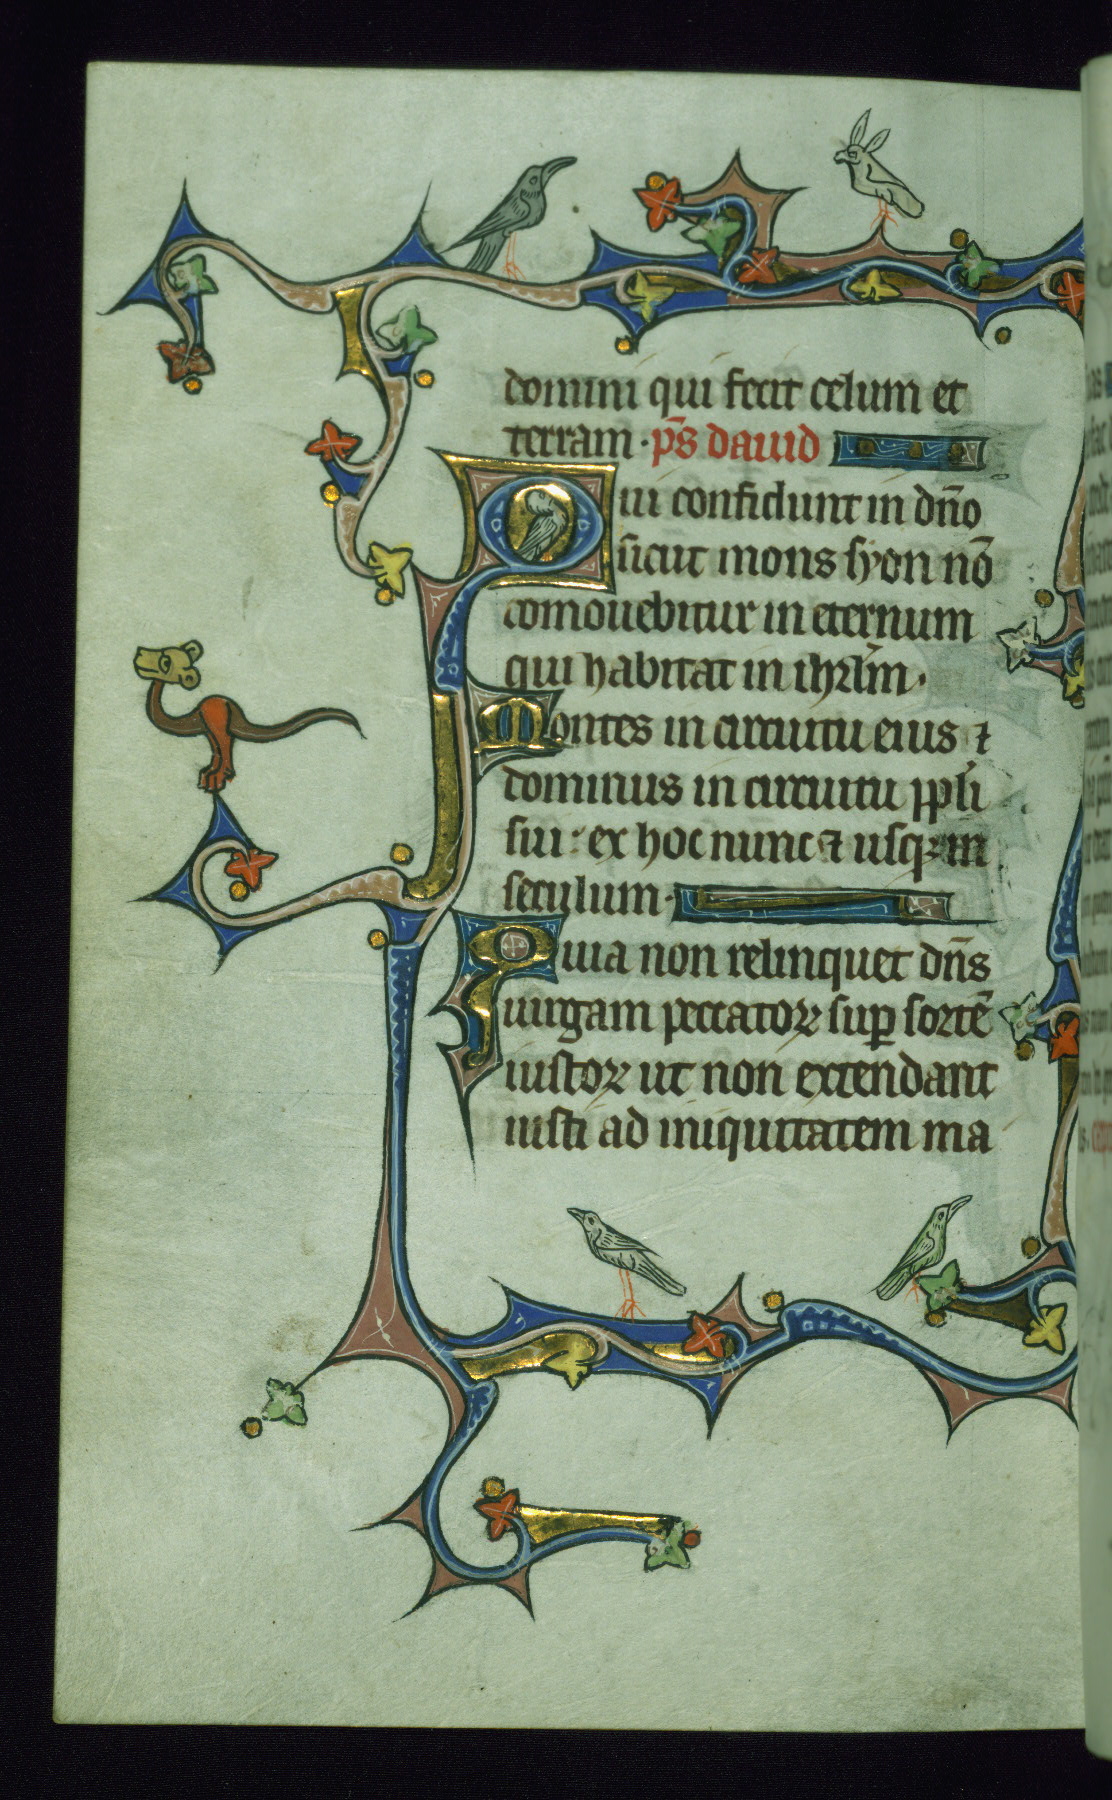 domini qui fecit celum et
terram · p̄s dauid
Qui confidunt in dn̄o
sicut mons syon nō
comouebitur in eternum
qui habitat in ihrl̄m ·
Montes in circuitu eius ⁊
dominus in circuitu ppl̓i
sui : ex hoc nunc ⁊ usqꝫ in
seculum ·
Quia non relinquet dn̄s
uirgam peccatoꝝ suꝑ sortē
iustoꝝ ut non extendant
iusti ad iniquitatem ma